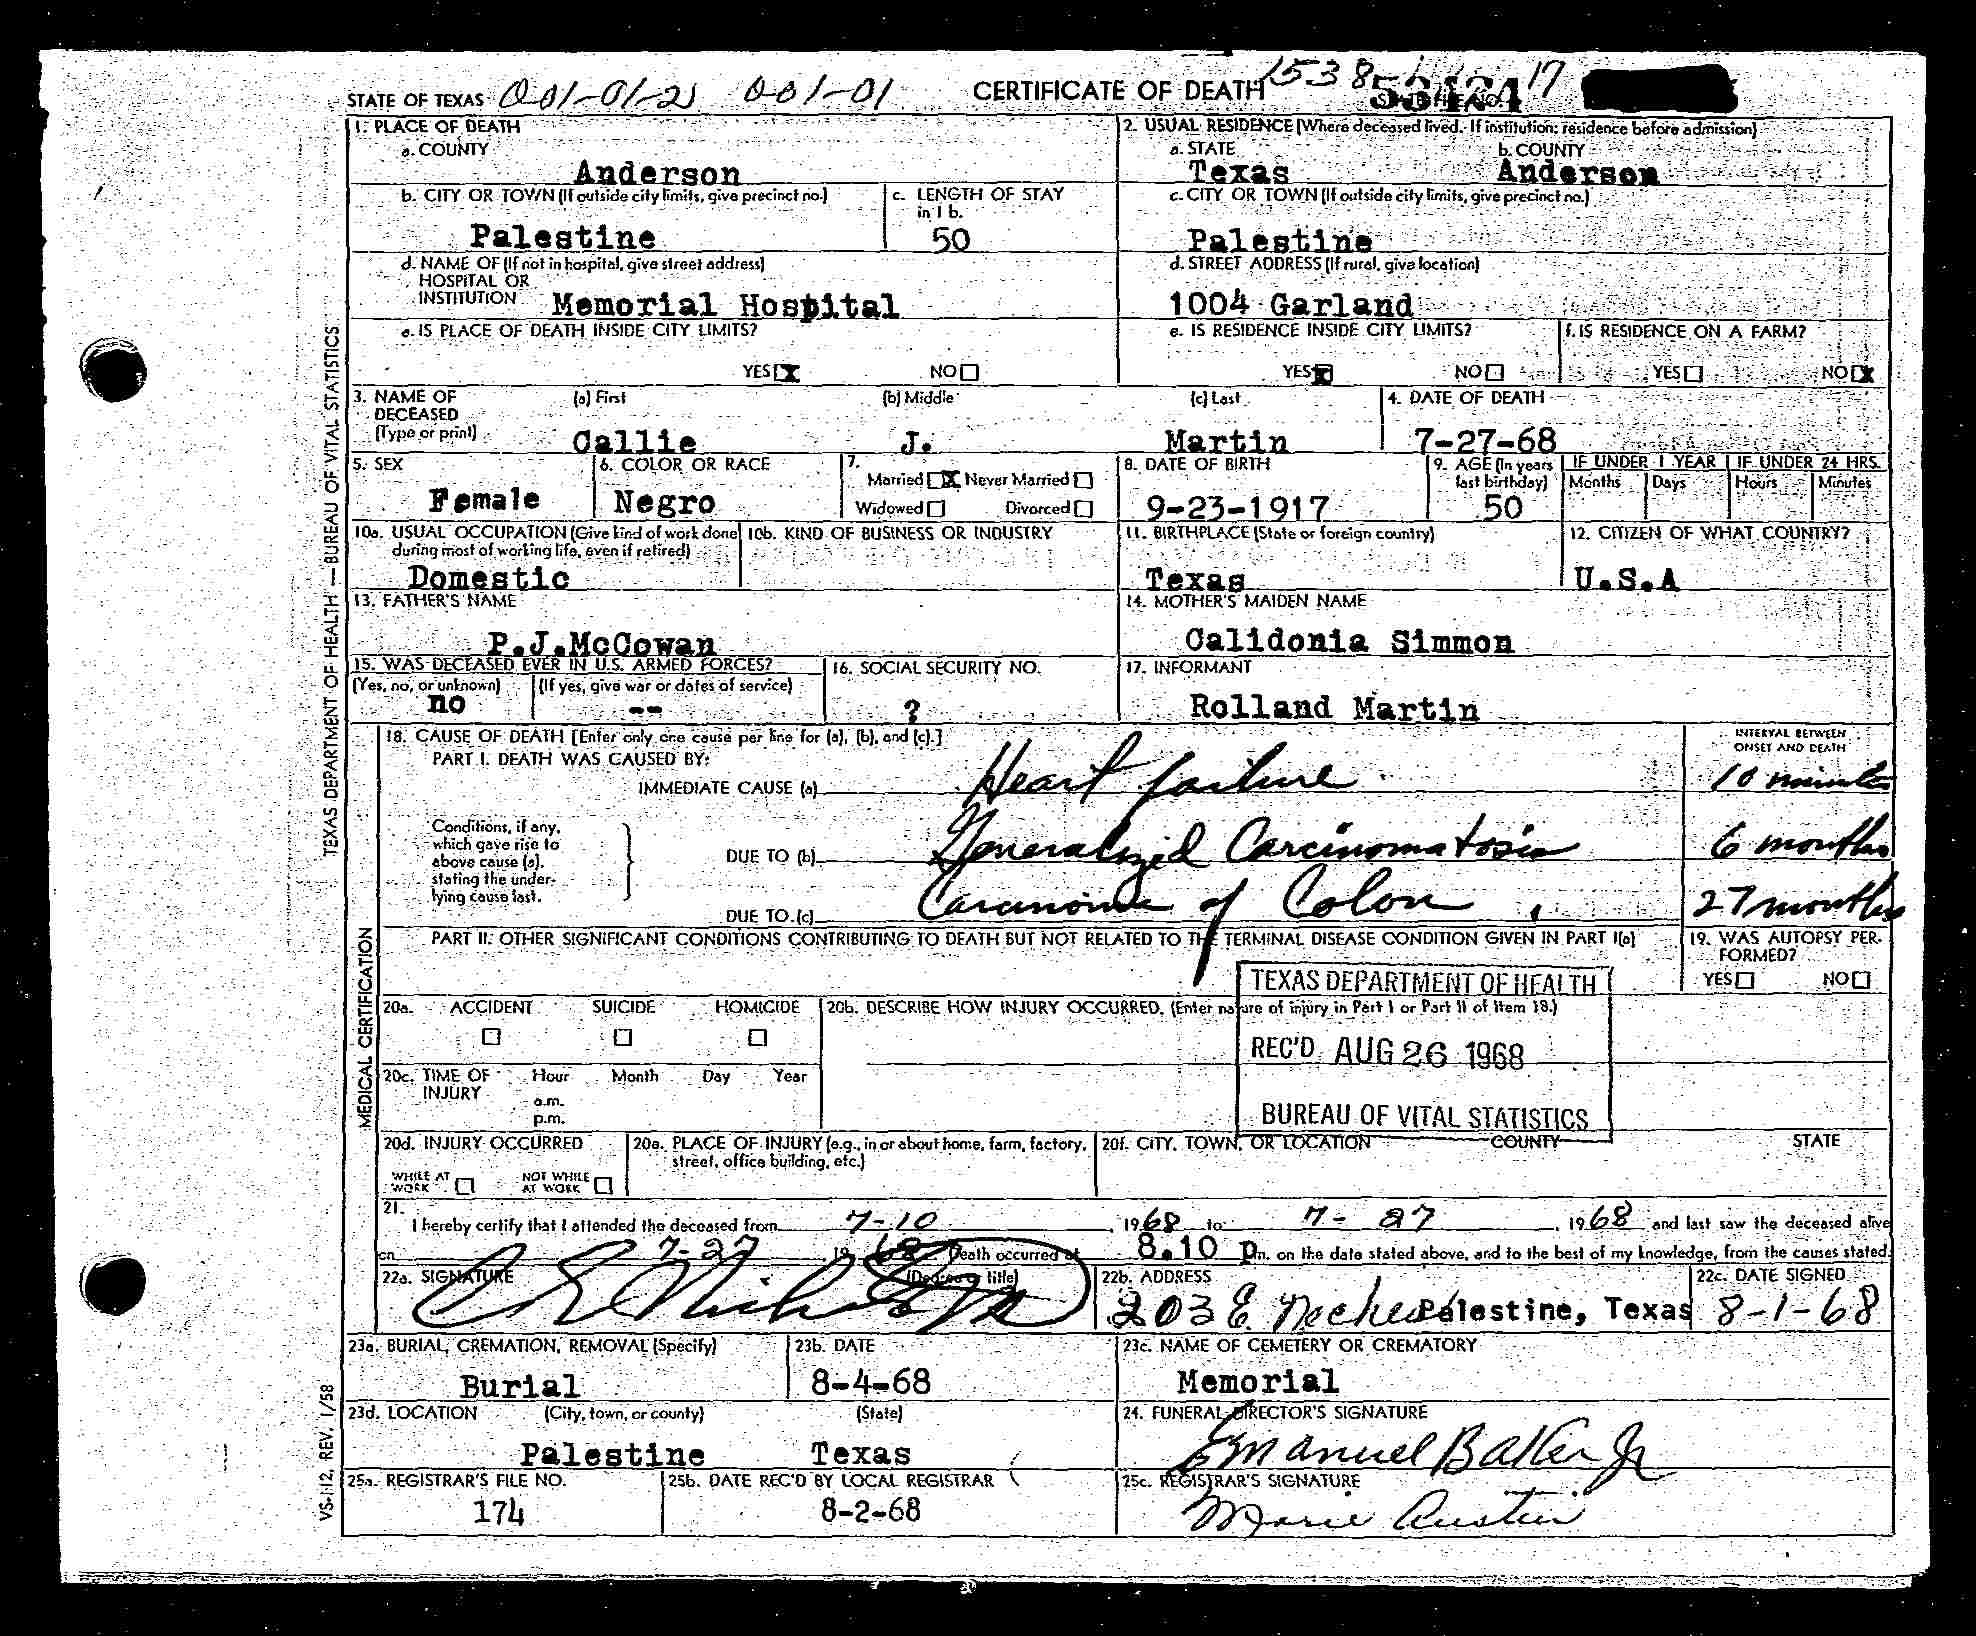 STATE OF TEXAS 001-01-21 001-01 CERTIFICATE OF DEATH 1538 17
1. PLACE OF DEATH
a. COUNTY
Anderson
2. USUAL RESIDENCE (Where deceased lived. If institution: residence before admission)
a. STATE b. COUNTY
Texas Anderson
b. CITY OR TOWN (If outside city limits, give precinct no.) c. LENGTH OF STAY in 1 b.
Palestine 50
c. CITY OR TOWN (If outside city limits, give precinct no.)
Palestine
d. NAME OF (If not in hospital, give street address)
HOSPITAL OR
INSTITUTION Memorial Hospital
d. STREET ADDRESS (If rural, give location)
1004 Garland
e. IS PLACE OF DEATH INSIDE CITY LIMITS?
YES X NO
e. IS RESIDENCE INSIDE CITY LIMITS? f. IS RESIDENCE ON A FARM?
YES X NO YES NO X
3. NAME OF DECEASED (Type or print) (a) First (b) Middle (c) Last 4. DATE OF DEATH
Callie J. Martin 7-27-68
5. SEX 6. COLOR OR RACE 7.
Married X Never Married
Widowed Divorced
Female Negro
8. DATE OF BIRTH 9. AGE (In years last birthday) IF UNDER 1 YEAR IF UNDER 24 HRS.
Months Days Hours Minutes
9-23-1917 50
10a. USUAL OCCUPATION (Give kind of work done during most of working life, even if retired) 10b. KIND OF BUSINESS OR INDUSTRY
Domestic
11. BIRTHPLACE (State or foreign country) 12. CITIZEN OF WHAT COUNTRY?
Texas U.S.A
13. FATHER'S NAME 14. MOTHER'S MAIDEN NAME
P.J.McCowan Calidonia Simmon
15. WAS DECEASED EVER IN U.S. ARMED FORCES? 16. SOCIAL SECURITY NO. 17. INFORMANT
(Yes, no, or unknown) (If yes, give war or dates of service)
no -- ? Rolland Martin
18. CAUSE OF DEATH [Enter only one cause per line for (a), (b), and (c).] INTERVAL BETWEEN ONSET AND DEATH
PART I. DEATH WAS CAUSED BY:
IMMEDIATE CAUSE (a) Heart failure 10 minutes
Conditions, if any, which gave rise to above cause (a), stating the underlying cause last.
DUE TO (b) Generalized Carcinomatosis 6 months
DUE TO (c) Carcinoma of Colon 27 months
PART II. OTHER SIGNIFICANT CONDITIONS CONTRIBUTING TO DEATH BUT NOT RELATED TO THE TERMINAL DISEASE CONDITION GIVEN IN PART I(a) 19. WAS AUTOPSY PERFORMED?
YES NO
TEXAS DEPARTMENT OF HEALTH
REC'D AUG 26 1968
BUREAU OF VITAL STATISTICS
20a. ACCIDENT SUICIDE HOMICIDE 20b. DESCRIBE HOW INJURY OCCURRED. (Enter nature of injury in Part I or Part II of Item 18.)
20c. TIME OF INJURY Hour Month Day Year
a.m.
p.m.
20d. INJURY OCCURRED 20e. PLACE OF INJURY (e.g., in or about home, farm, factory, street, office building, etc.) 20f. CITY, TOWN, OR LOCATION COUNTY STATE
WHILE AT WORK NOT WHILE AT WORK
21. I hereby certify that I attended the deceased from 7-10, 1968 to 7-27, 1968 and last saw the deceased alive
on 7-27 1968 Death occurred at 8.10 P.m. on the date stated above, and to the best of my knowledge, from the causes stated.
22a. SIGNATURE (Degree or title) 22b. ADDRESS 22c. DATE SIGNED
203 E. Neches Palestine, Texas 8-1-68
23a. BURIAL, CREMATION, REMOVAL (Specify) 23b. DATE 23c. NAME OF CEMETERY OR CREMATORY
Burial 8-4-68 Memorial
23d. LOCATION (City, town, or county) (State) 24. FUNERAL DIRECTOR'S SIGNATURE
Palestine Texas Emanuel Baker Jr
25a. REGISTRAR'S FILE NO. 25b. DATE REC'D BY LOCAL REGISTRAR 25c. REGISTRAR'S SIGNATURE
174 8-2-68 Marie Austin
TEXAS DEPARTMENT OF HEALTH — BUREAU OF VITAL STATISTICS
MEDICAL CERTIFICATION
VS-112, REV. 1/58